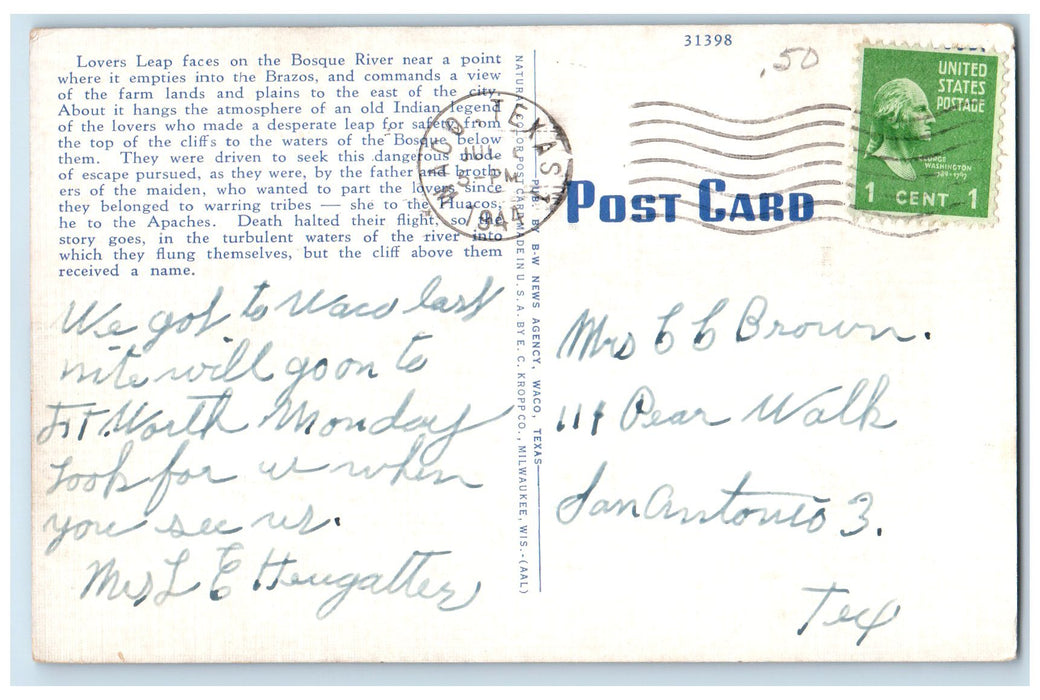 31398
.50
UNITED
STATES
POSTAGE
GEORGE
WASHINGTON
1789-1797
1 CENT 1
WACO, TEXAS
JUL
PM
1944
Lovers Leap faces on the Bosque River near a point
where it empties into the Brazos, and commands a view
of the farm lands and plains to the east of the city.
About it hangs the atmosphere of an old Indian legend
of the lovers who made a desperate leap for safety from
the top of the cliffs to the waters of the Bosque below
them. They were driven to seek this dangerous mode
of escape pursued, as they were, by the father and broth-
ers of the maiden, who wanted to part the lovers since
they belonged to warring tribes — she to the Huacos,
he to the Apaches. Death halted their flight, so the
story goes, in the turbulent waters of the river into
which they flung themselves, but the cliff above them
received a name.
We got to Waco last
nite will go on to
FT. Worth Monday
Look for us when
you see us.
Mrs L E
NATURAL COLOR POST CARD MADE IN U.S.A. BY E. C. KROPP CO., MILWAUKEE, WIS.-(AAL)
PUB. BY B-W NEWS AGENCY, WACO, TEXAS
POST CARD
Mrs C C Brown.
114 Pear Walk
San Antonio 3.
Tex